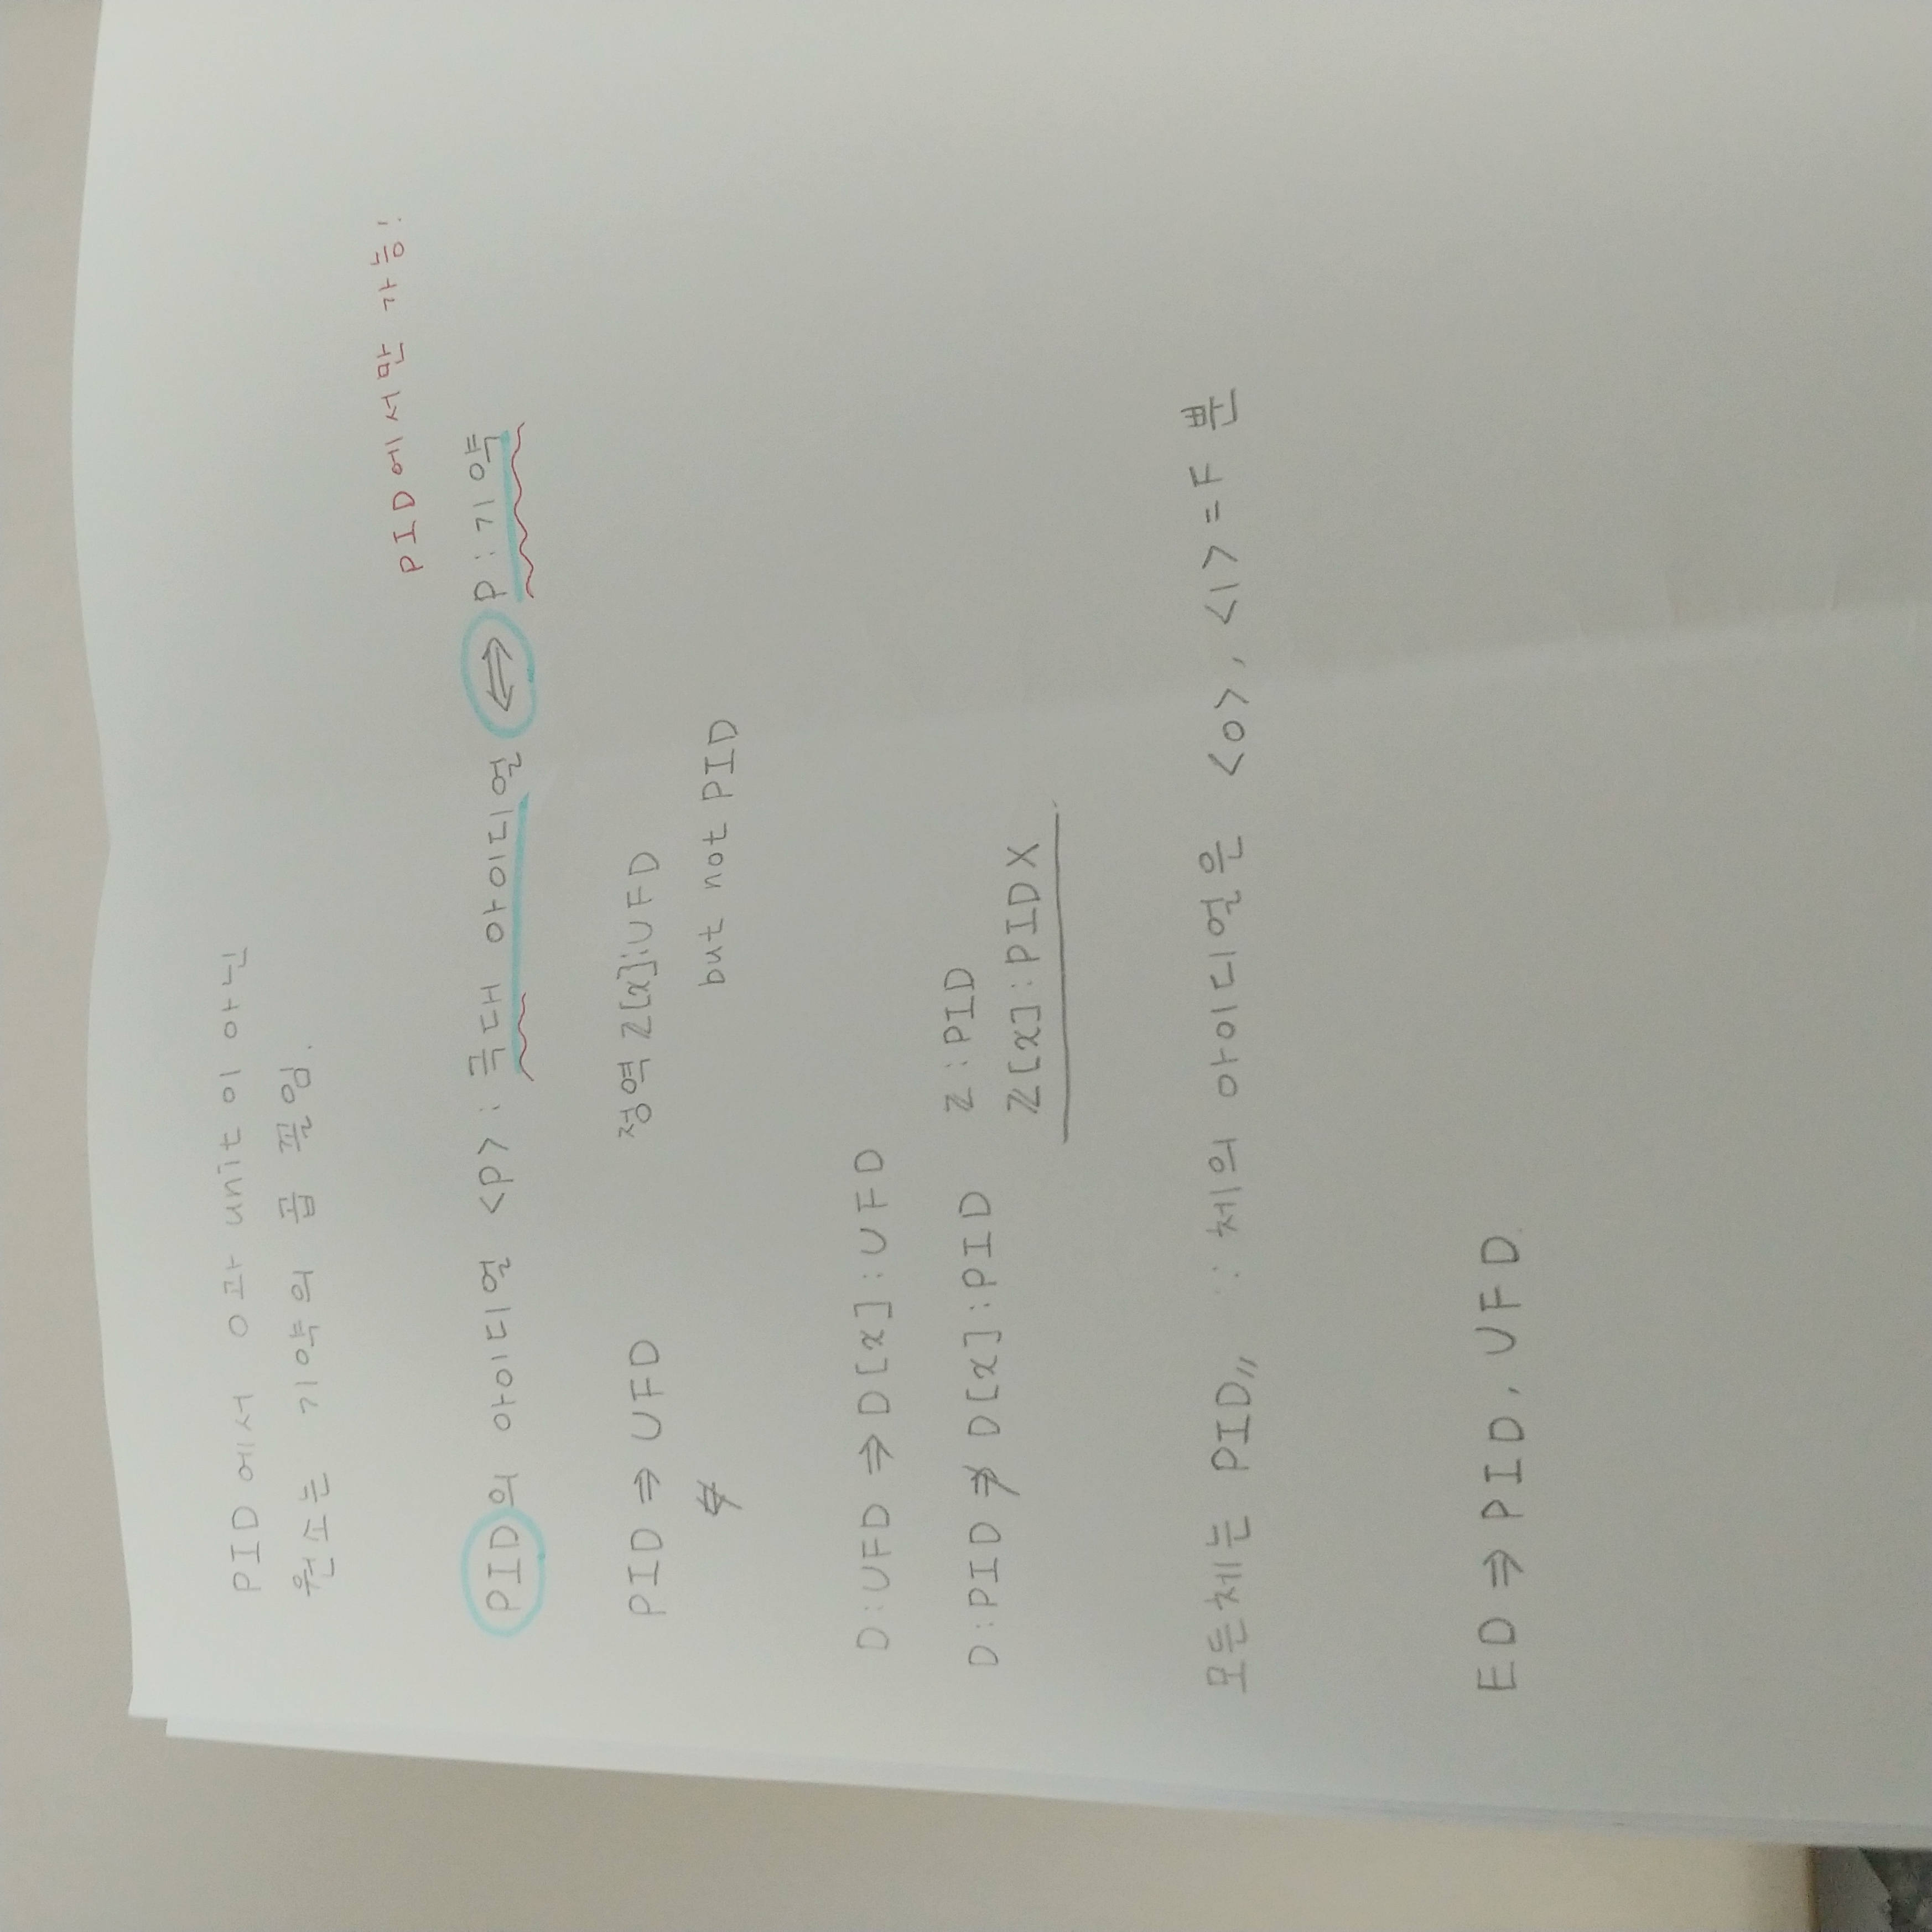 PID에서 0과 unit이 아닌
원소는 기약의 곱 꼴임.
PID에서만 가능!
PID의 아이디얼 <p> : 극대 아이디얼 ⟺ P : 기약
PID ⇒ UFD 정역 Z[x] : UFD
⇍ but not PID
D : UFD ⇒ D[x] : UFD
D : PID ⇏ D[x] : PID ℤ : PID
ℤ[x] : PID X
모든체는 PID〃 ∵ 체의 아이디얼은 <0>, <1> = F 뿐
ED ⇒ PID, UFD.